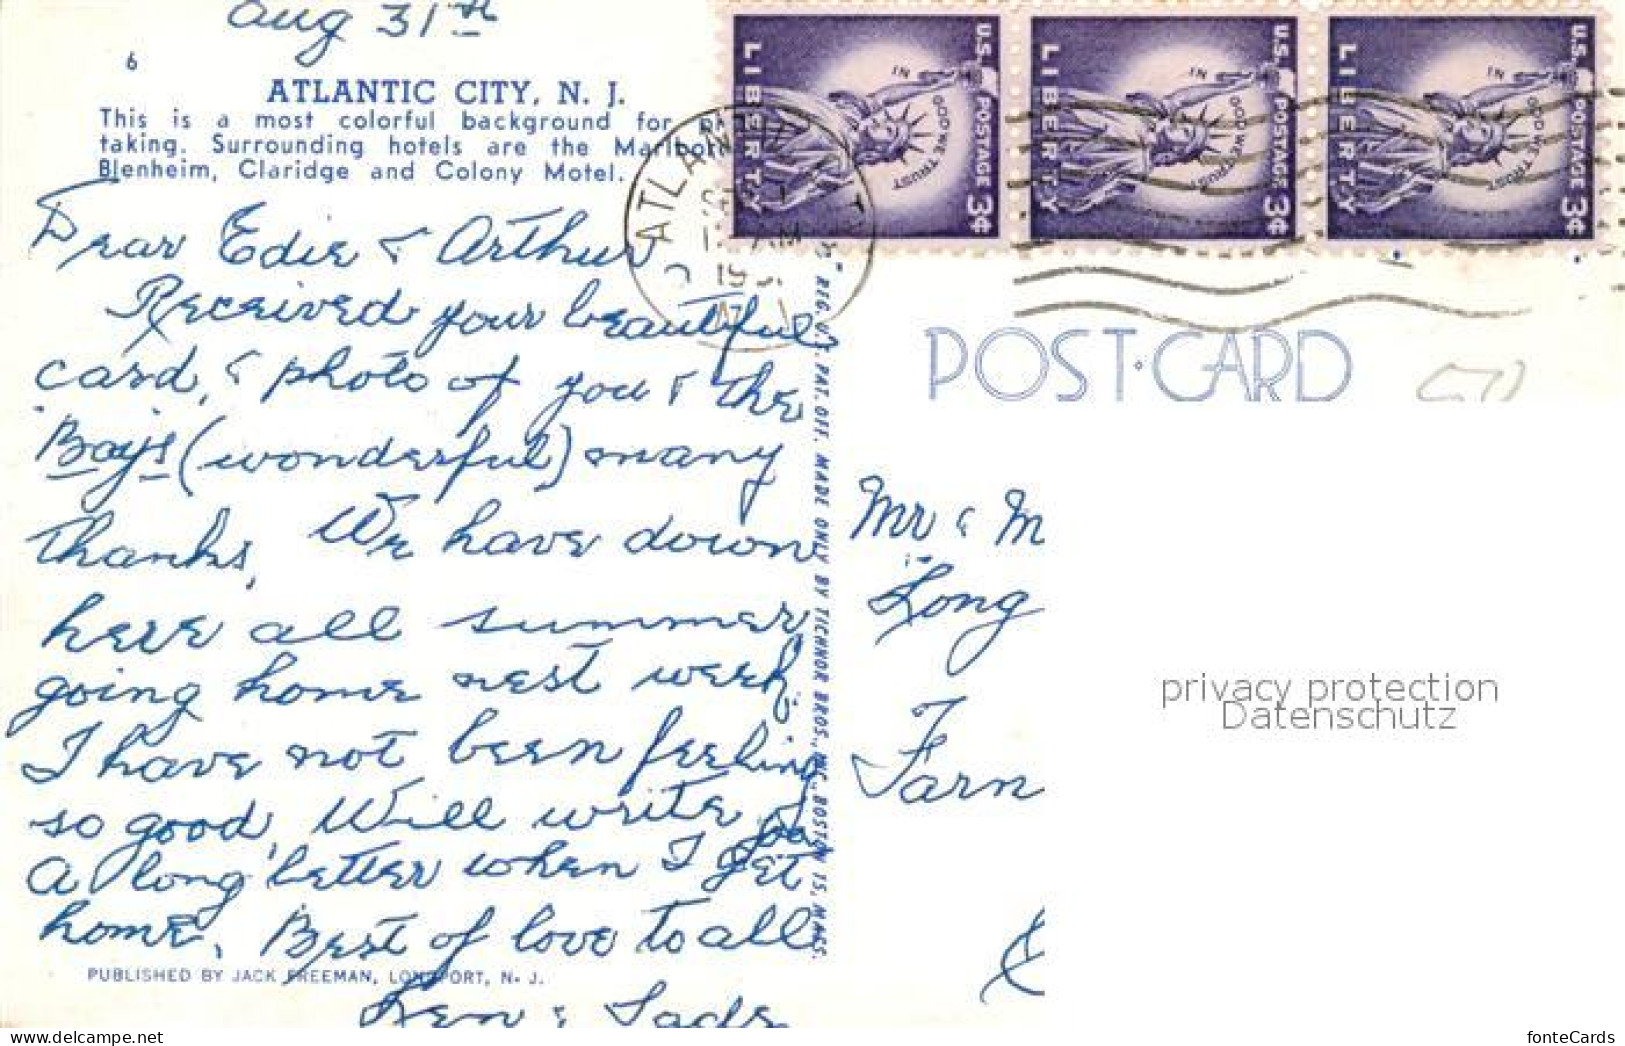 Aug 31th
6
ATLANTIC CITY, N. J.
This is a most colorful background for
taking. Surrounding hotels are the Marlboro
Blenheim, Claridge and Colony Motel.
Dear Edie & Arthur
Received your beautiful
card, & photo of you & the
Boys (wonderful) many
thanks, We have down
here all summer
going home nest week,
I have not been feeling
so good, Will write you
A long letter when I get
home, Best of love to all
PUBLISHED BY JACK FREEMAN, LONGPORT, N. J.
Len & Sade
REG. U.S. PAT. OFF. MADE ONLY BY TICHNOR BROS., INC., BOSTON 15, MASS.
ATLAN
AM
19
U.S. POSTAGE 3¢
LIBERTY
IN GOD WE TRUST
U.S. POSTAGE 3¢
LIBERTY
IN GOD WE TRUST
U.S. POSTAGE 3¢
LIBERTY
IN GOD WE TRUST
POST CARD
Mr & M
Long
Farn
privacy protection
Datenschutz
delcampe.net
fonteCards